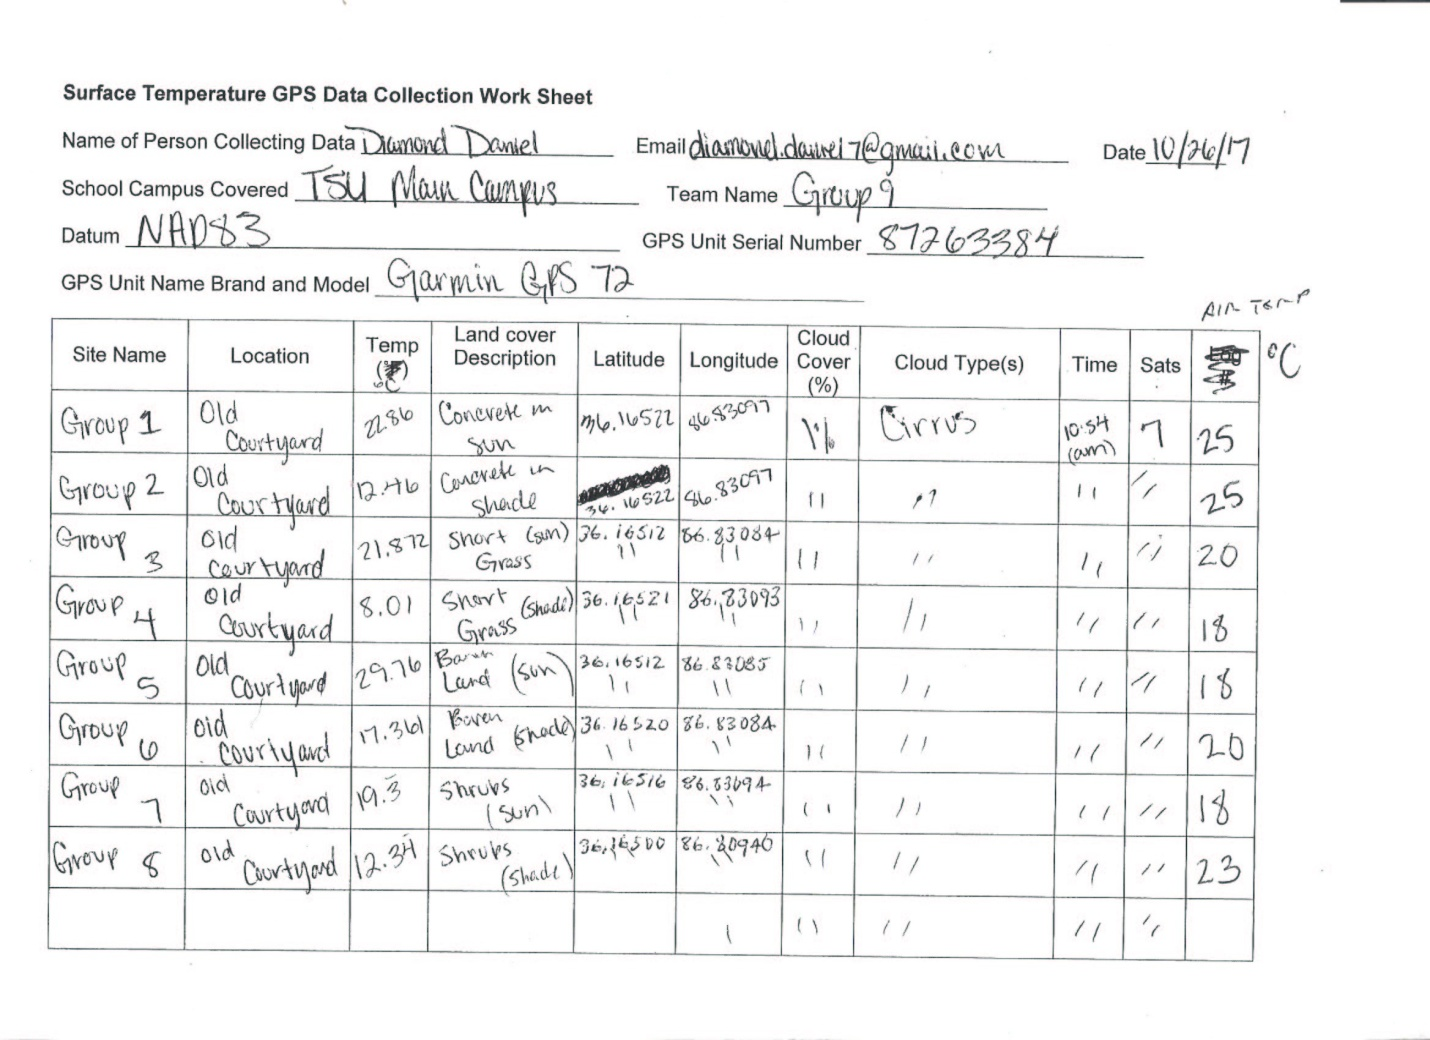 Surface Temperature GPS Data Collection Work Sheet
Name of Person Collecting Data Diamond Daniel Email diamond.daniel7@gmail.com Date 10/26/17
School Campus Covered TSU Main Campus Team Name Group 9
Datum NAD83 GPS Unit Serial Number 87263384
GPS Unit Name Brand and Model Garmin GPS 72
AIR TEMP
Site Name Location Temp (°C) Land cover Description Latitude Longitude Cloud Cover (%) Cloud Type(s) Time Sats °C
Group 1 Old Courtyard 22.86 Concrete in sun 36.16522 86.83097 1% Cirrus 10:54 (am) 7 25
Group 2 Old Courtyard 12.46 Concrete in shade 36.16522 86.83097 " " " " 25
Group 3 Old Courtyard 21.872 Short (sun) Grass 36.16512 " 86.83084 " " " " " 20
Group 4 Old Courtyard 8.01 Short (shade) Grass 36.16521 " 86.83093 " " " " " 18
Group 5 Old Courtyard 29.76 Baren Land (sun) 36.16512 " 86.83085 " " " " " 18
Group 6 Old Courtyard 17.361 Baren Land (shade) 36.16520 " 86.83084 " " " " " 20
Group 7 Old Courtyard 19.3 Shrubs (sun) 36.16516 " 86.83094 " " " " " 18
Group 8 Old Courtyard 12.34 Shrubs (shade) 36.16500 " " " " " " 23
" " " "